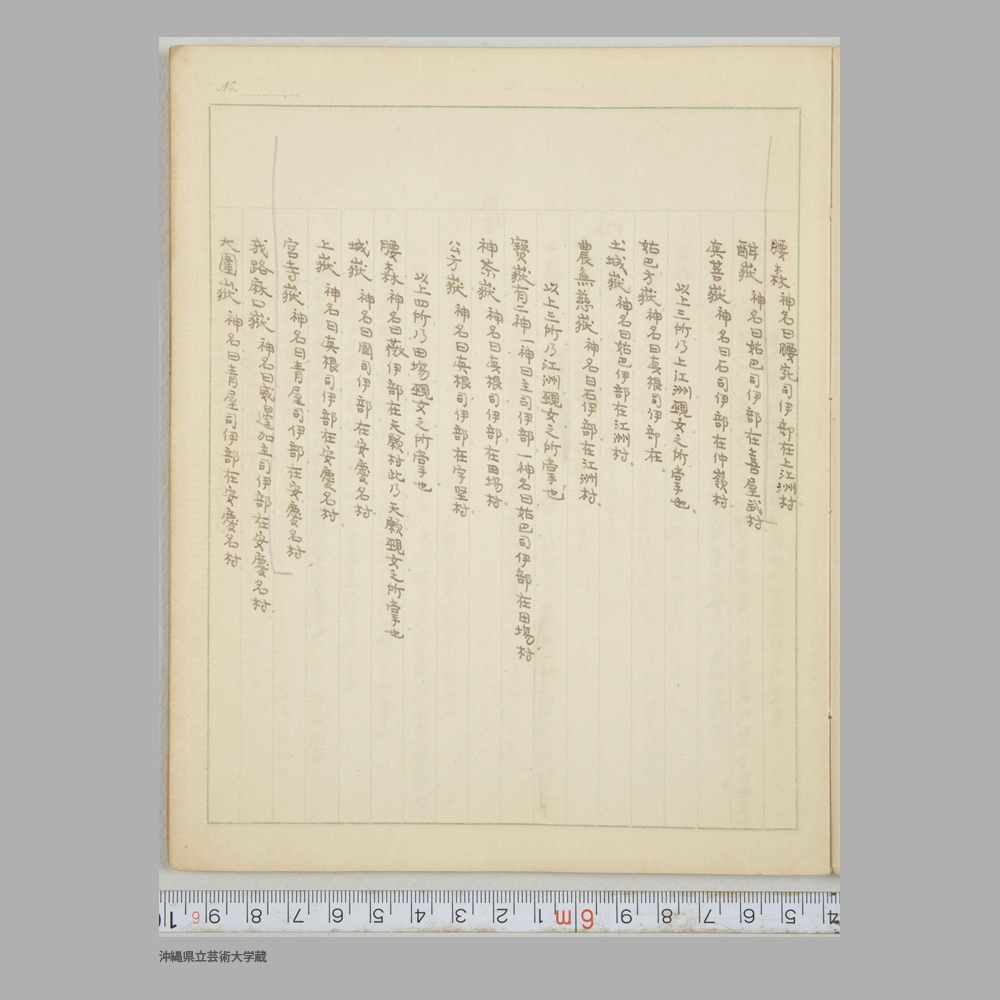 腰森 神名曰腰宛司伊部在上江洲村
酣嶽 神名曰姑巴司伊部在喜屋武村
真菩嶽 神名曰石司伊部在仲嶺村
以上三所乃上江洲覡女之所掌也、
姑巴方嶽 神名曰真根司伊部在、
土城嶽 神名曰姑巴伊部在江洲村
農無慈嶽 神名曰石伊部在江洲村、
以上三所乃江洲覡女之所掌也
寶嶽有二神一神曰主司伊部一神名曰姑巴司伊部在田場村
神茶嶽 神名曰真根司伊部在田場村
公方嶽 神名曰真根司伊部在宇堅村
以上四所乃田場覡女之所掌也
腰森 神名曰薇伊部在天願村此乃天願覡女之所掌也
城嶽 神名曰園司伊部在安慶名村
上嶽 神名曰真根司伊部在安慶名村
宮寺嶽 神名曰青屋司伊部在安慶名村
我路麻口嶽 神名曰威星加主司伊部在安慶名村
大圍嶽 神名曰青屋司伊部在安慶名村
No.
10 9 8 7 6 5 4 3 2 1 6m 9 8 7 6 5 4
沖縄県立芸術大学蔵